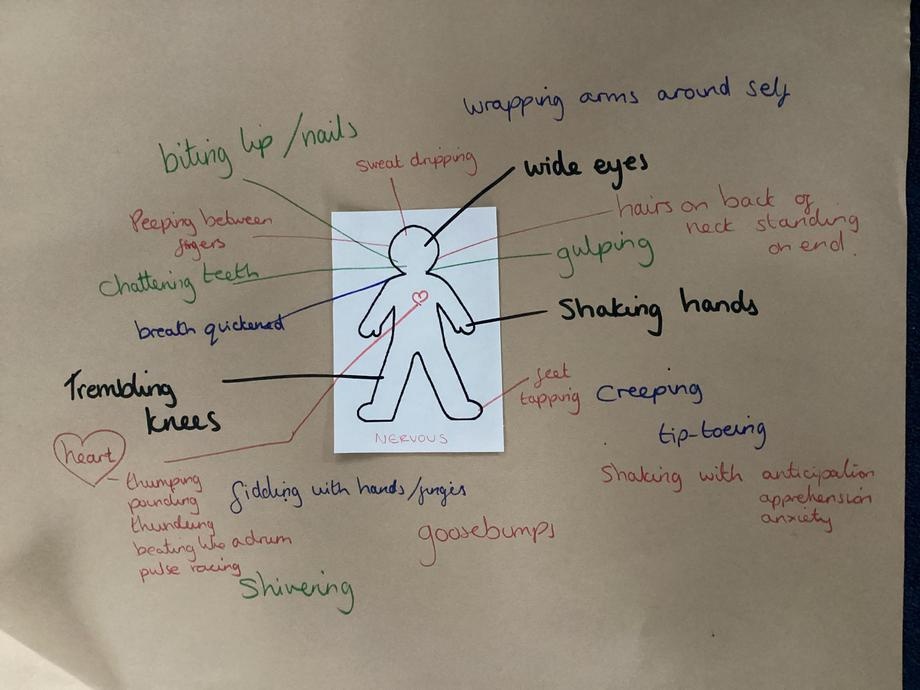 wrapping arms around self
biting lip/nails
sweat dripping
wide eyes
Peeping between
fingers
hairs on back of
neck standing
on end.
gulping
chattering teeth
breath quickened
Shaking hands
Trembling
knees
feet
tapping
Creeping
tip-toeing
NERVOUS
heart
thumping
pounding
thundering
beating like a drum
pulse racing
fiddling with hands/fingers
Shaking with anticipation
apprehension
anxiety
goosebumps
Shivering